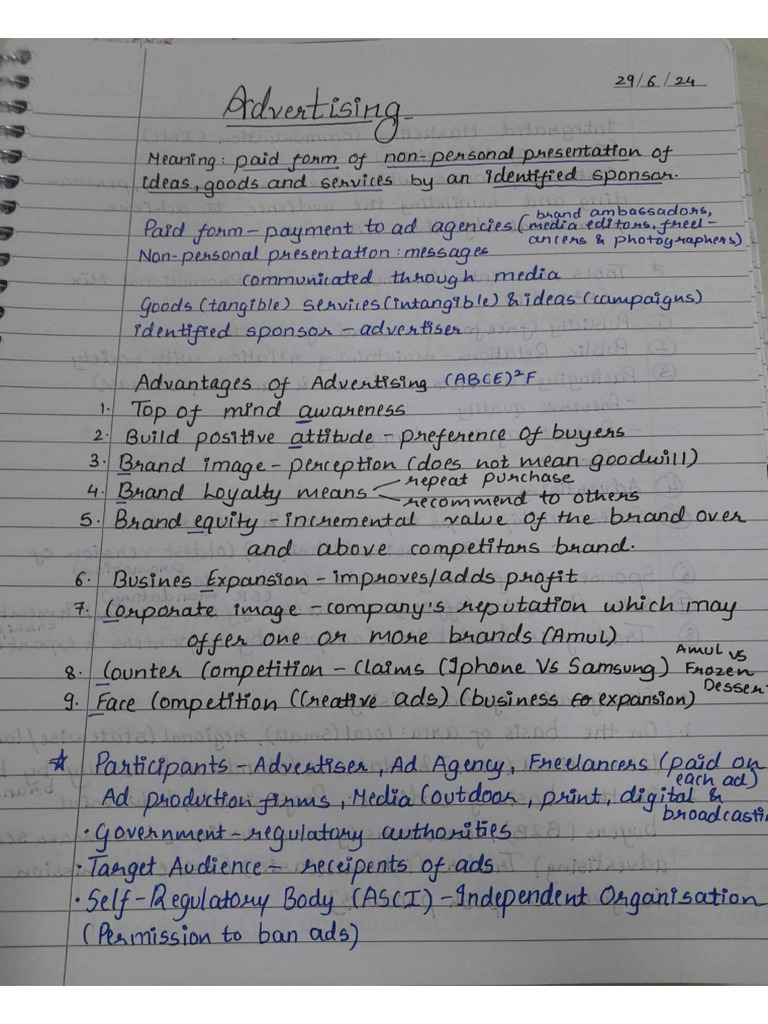 29/6/24
Advertising
Meaning: paid form of non-personal presentation of
ideas, goods and services by an identified sponsor.
Paid form - payment to ad agencies (brand ambassadors,
media editors, freel-
ancers & photographers)
Non-personal presentation: messages
communicated through media
Goods (tangible) services (intangible) & ideas (campaigns)
identified sponsor - advertiser
Advantages of Advertising (ABCE)²F
1. Top of mind awareness
2. Build positive attitude - preference of buyers
3. Brand image - perception (does not mean goodwill)
4. Brand Loyalty means repeat purchase
recommend to others
5. Brand equity - incremental value of the brand over
and above competitors brand.
6. Busines Expansion - improves/adds profit
7. Corporate image - company's reputation which may
offer one or more brands (Amul)
8. Counter Competition - Claims (Iphone Vs Samsung) Amul vs
Frozen
Dessert
9. Face Competition (Creative ads) (business expansion)
* Participants - Advertiser, Ad Agency, Freelancers (paid on
each ad)
Ad production firms, Media (outdoor, print, digital &
broadcasti
• Government - regulatory authorities
• Target Audience - receipents of ads
• Self-Regulatory Body (ASCI) - Independent Organisation
(Permission to ban ads)